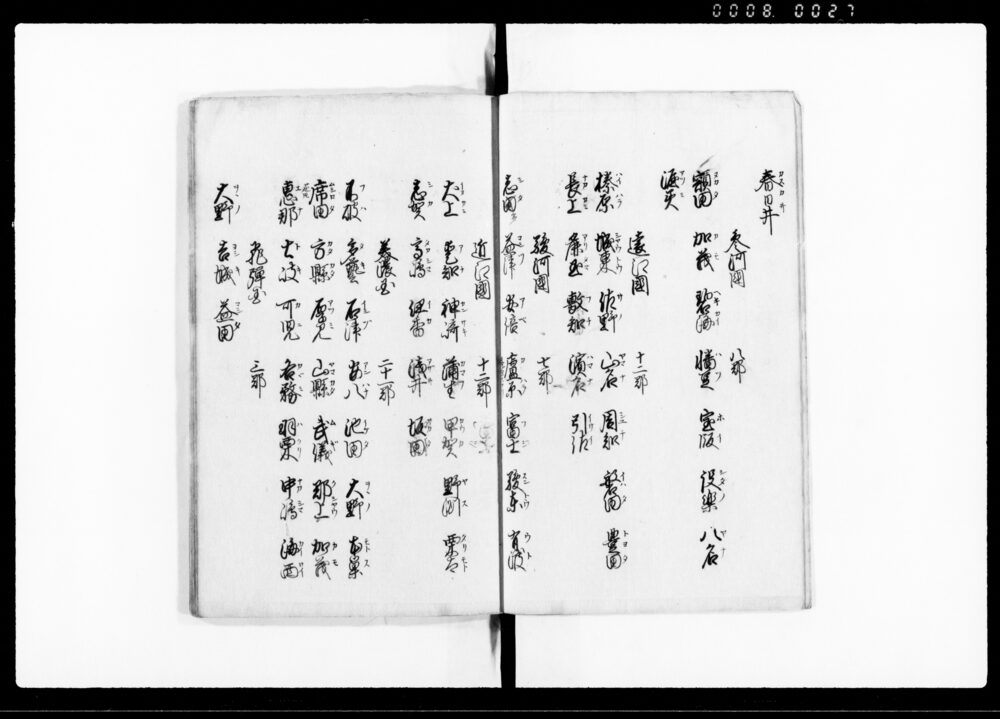 0008 0027
春日井
參河國 八郡
額田 加茂 碧海 幡豆 寳飯 設樂 八名
渥美
遠江國 十三郡
榛原 城東 佐野 山名 周知 磐田 豊田
長上 麁玉 敷知 濱名 引佐
駿河國 七郡
志田 益津 安倍 廬原 富士 駿東 有渡
近江國 十三郡
犬上 愛知 神崎 蒲生 甲賀 野洲 栗太
志賀 高嶋 伊香 淺井 坂田
美濃国 二十一郡
不破 多藝 石津 安八 池田 大野 本巣
席田 方縣 厚見 山縣 武儀 郡上 加茂
惠那 土岐 可児 各務 羽栗 中嶋 海西
飛彈国 三郡
大野 吉城 益田